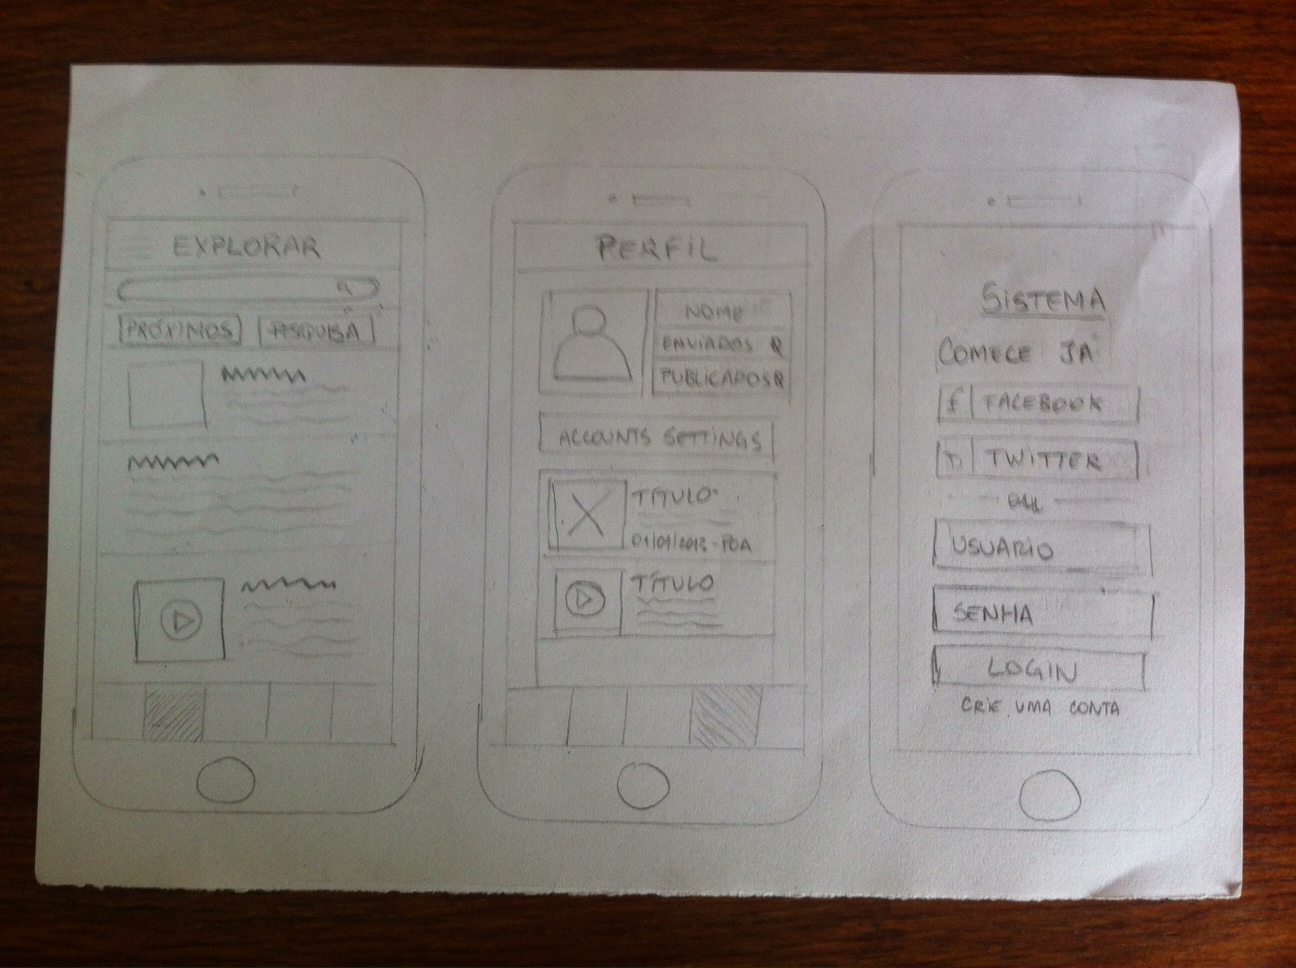 EXPLORAR
PRÓXIMOS PESQUISA
PERFIL
NOME
ENVIADOS
PUBLICADOS
ACCOUNTS SETTINGS
TÍTULO
TÍTULO
SISTEMA
COMECE JA
f FACEBOOK
TWITTER
OU
USUARIO
SENHA
LOGIN
CRIE UMA CONTA